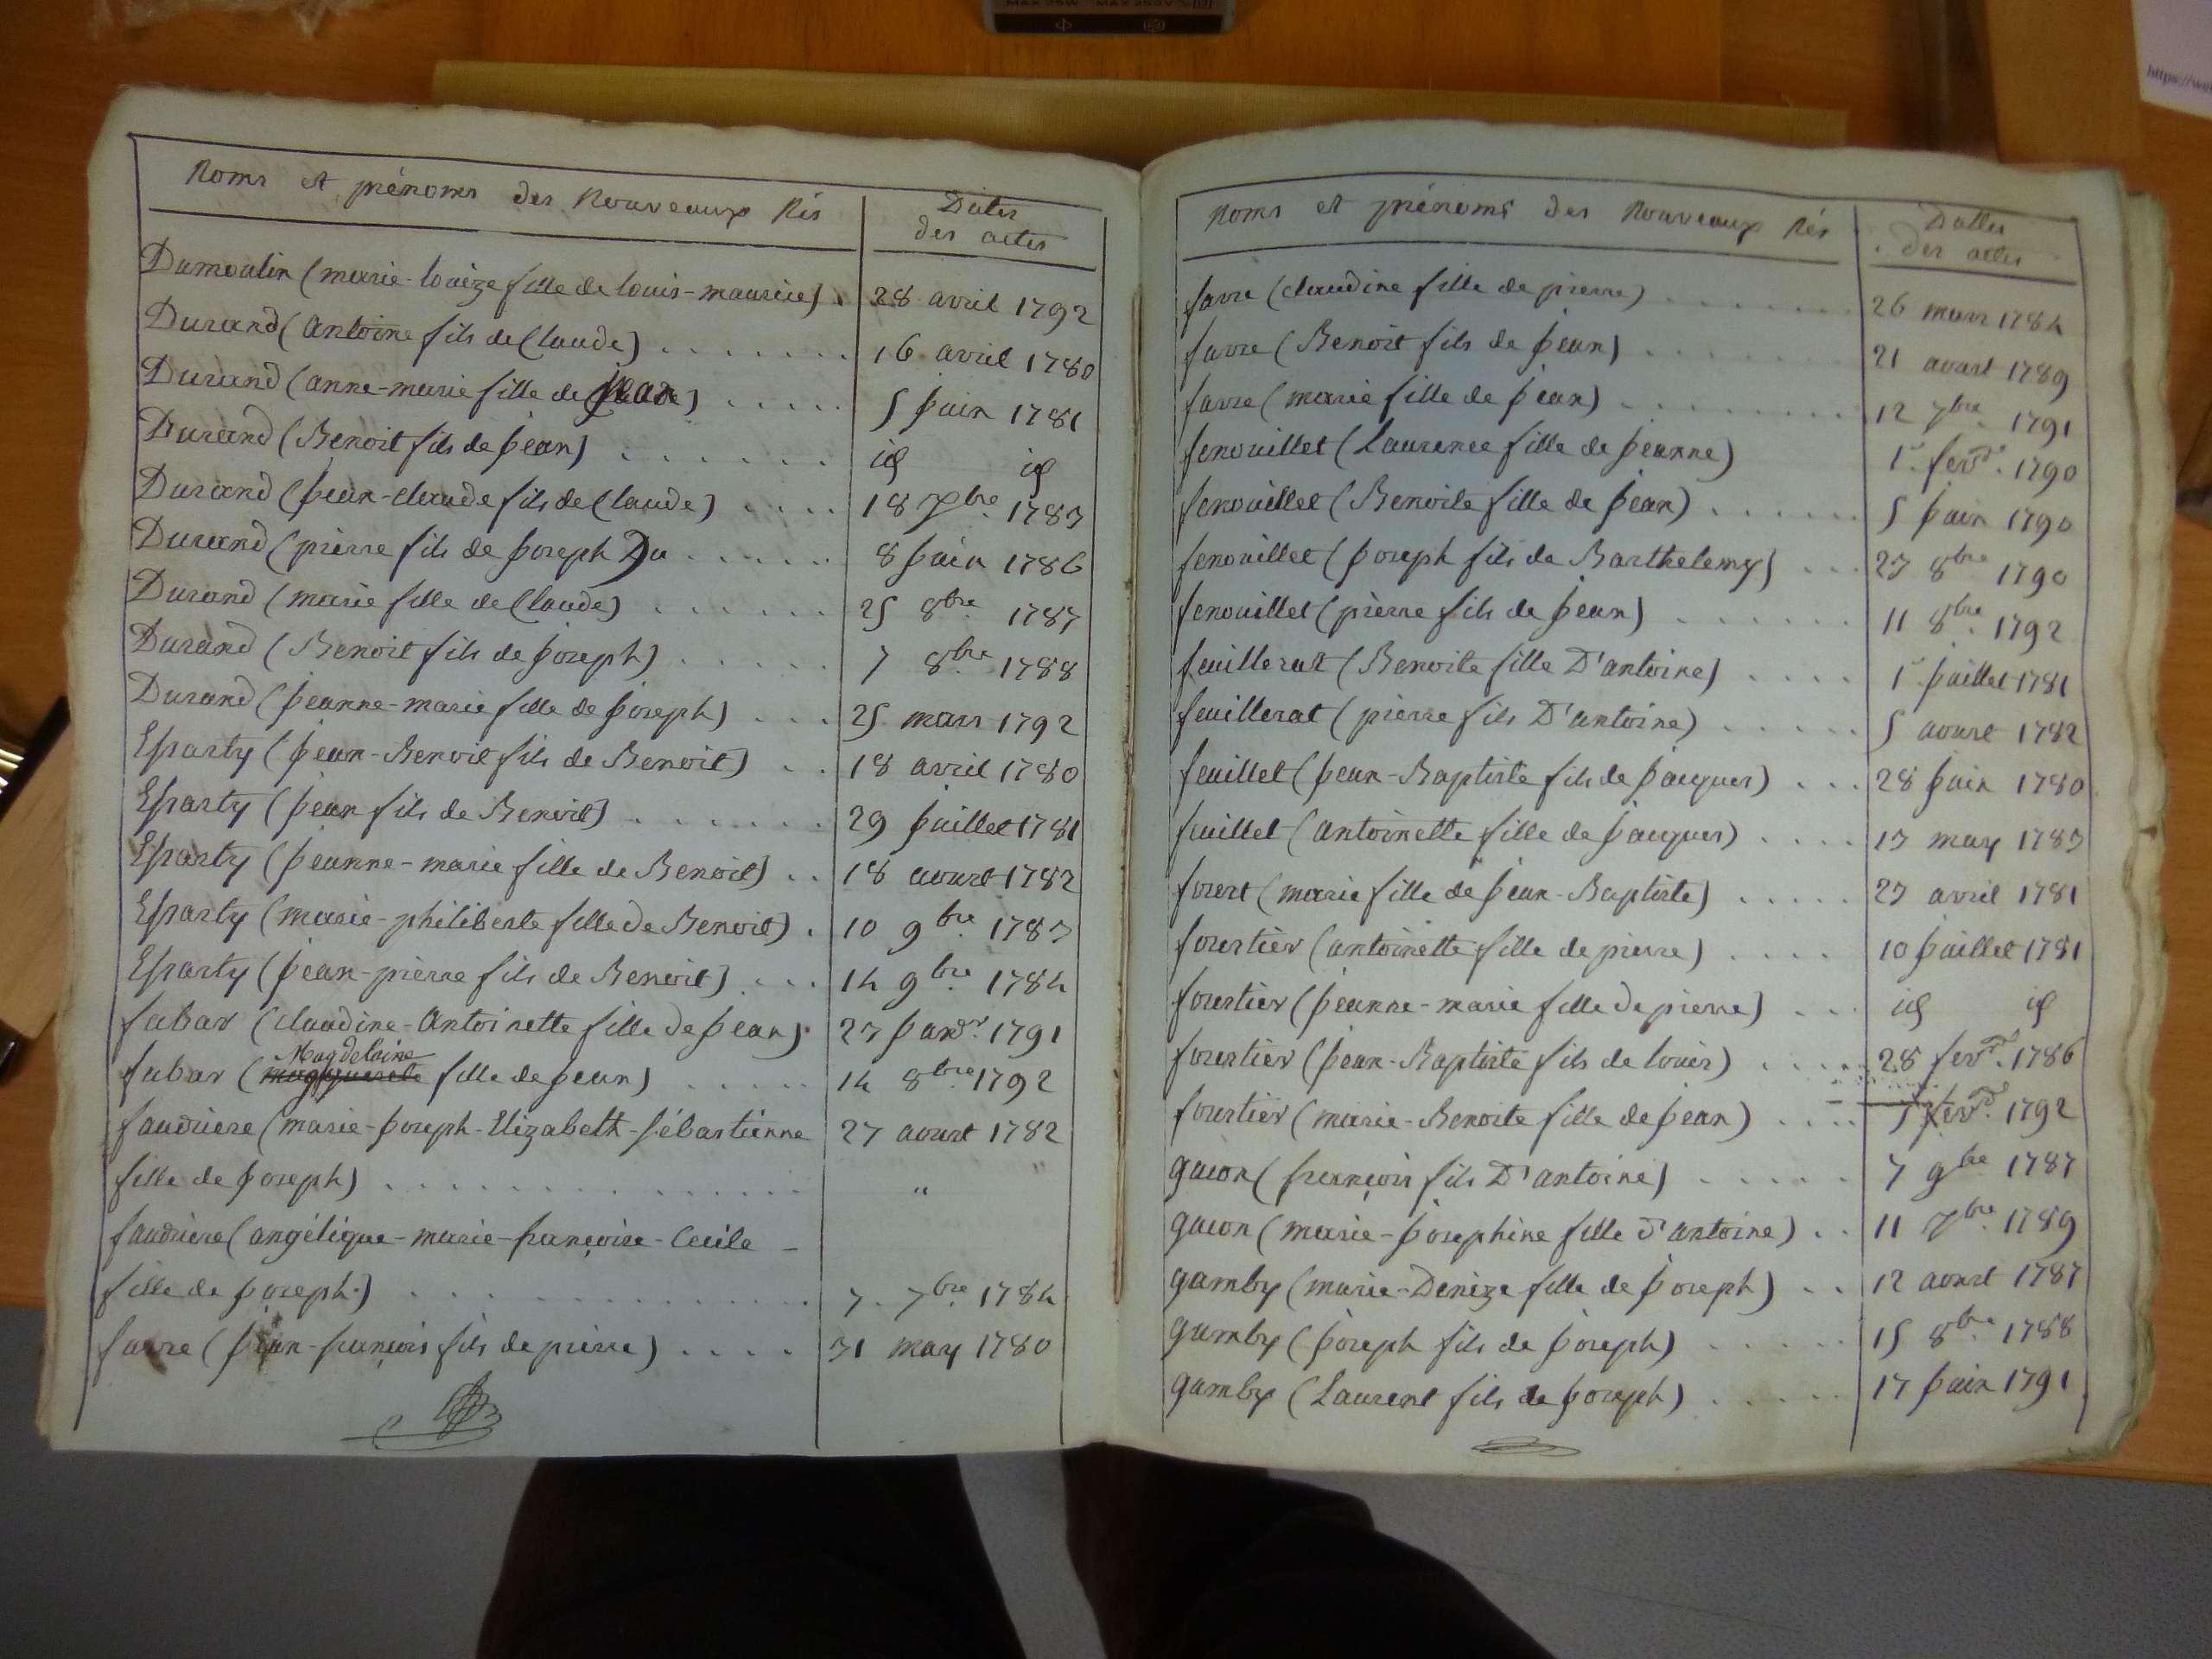 MAX 250V
https://we
Noms et prénoms des Nouveaux Nés
Dates
des actes
Dumoulin (marie-louize fille de louis-maurice) . 28 avril 1792
Durand (antoine fils de Claude) . . . . . . . 16 avril 1780
Durand (anne-marie fille de Jean) . . . . . 5 Juin 1781
Durand (Benoit fils de Jean) . . . . . . id id
Durand (Jean-claude fils de Claude) . . . . 18 7bre 1783
Durand (pierre fils de Joseph Du . . . . . 8 Juin 1786
Durand (marie fille de Claude) . . . . . . 25 8bre 1787
Durand (Benoit fils de Joseph) . . . . . 7 8bre 1788
Durand (Jeanne-marie fille de Joseph) . . . 25 mars 1792
Esparty (Jean-Benoit fils de Benoit) . . 18 avril 1780
Esparty (Jean fils de Benoit) . . . . . . . 29 Juillet 1781
Esparty (Jeanne-marie fille de Benoit) . . 18 aoust 1782
Esparty (marie-philiberte fille de Benoit) . 10 9bre 1783
Esparty (Jean-pierre fils de Benoit) . . . 14 9bre 1784
fabar (claudine-Antoinette fille de Jean) . 23 Janvr. 1791
Magdelaine
fabar (marguerite fille de Jean) . . . . . . 14 8bre 1792
faudriere (marie-Joseph-Elizabeth-sébastienne 27 aoust 1782
fille de Joseph) . . . . . . . . . . . . . . . " "
faudriere (angélique-marie-françoise-Cecile -
fille de Joseph.) . . . . . . . . . . . . . . 7. 7bre 1784
favre (Jean-françois fils de pierre) . . . . 31 may 1780
Noms et prénoms des Nouveaux Nés
Dattes
des actes
favre (claudine fille de pierre) . . . . . . . . . 26 mars 1784
favre (Benoit fils de Jean) . . . . . . . . 21 aoust 1789
favre (marie fille de Jean) . . . . . . . . . 12 7bre 1791
fenouillet (Laurence fille de Jeanne) 1r. fevr. 1790
fenouillet (Benoite fille de Jean) . . . . . . 5 Juin 1790
fenouillet (Joseph fils de Barthelemy) . . . 23 8bre 1790
fenouillet (pierre fils de Jean) . . . . . . . 11 8bre 1792
feuillerat (Benoite fille D'antoine) . . . . 1r Juillet 1781
feuillerat (pierre fils D'antoine) . . . . . . 5 aoust 1782
feuillet (Jean-Baptiste fils de Jacques) . . . 28 Juin 1780
feuillet (antoinette fille de Jacques) . . . . 13 may 1783
forest (marie fille de Jean-Baptiste) . . . . . 23 avril 1781
forestier (antoinette fille de pierre) . . . . 10 Juillet 1781
forestier (Jeanne-marie fille de pierre) . . . id id
forestier (Jean-Baptiste fils de louis) . . . . 28 fevr. 1786
forestier (marie-Benoite fille de Jean) . . . . 5 fevr. 1792
gacon (françois fils D'antoine) . . . . . 7 9bre 1787
gacon (marie-Josephine fille d'antoine) . . 11 7bre 1789
gamby (marie-Denize fille de Joseph) . . 12 aoust 1787
gamby (Joseph fils de Joseph) . . . . . . 15 8bre 1788
gamby (Laurent fils de Joseph) . . . . . 17 Juin 1791